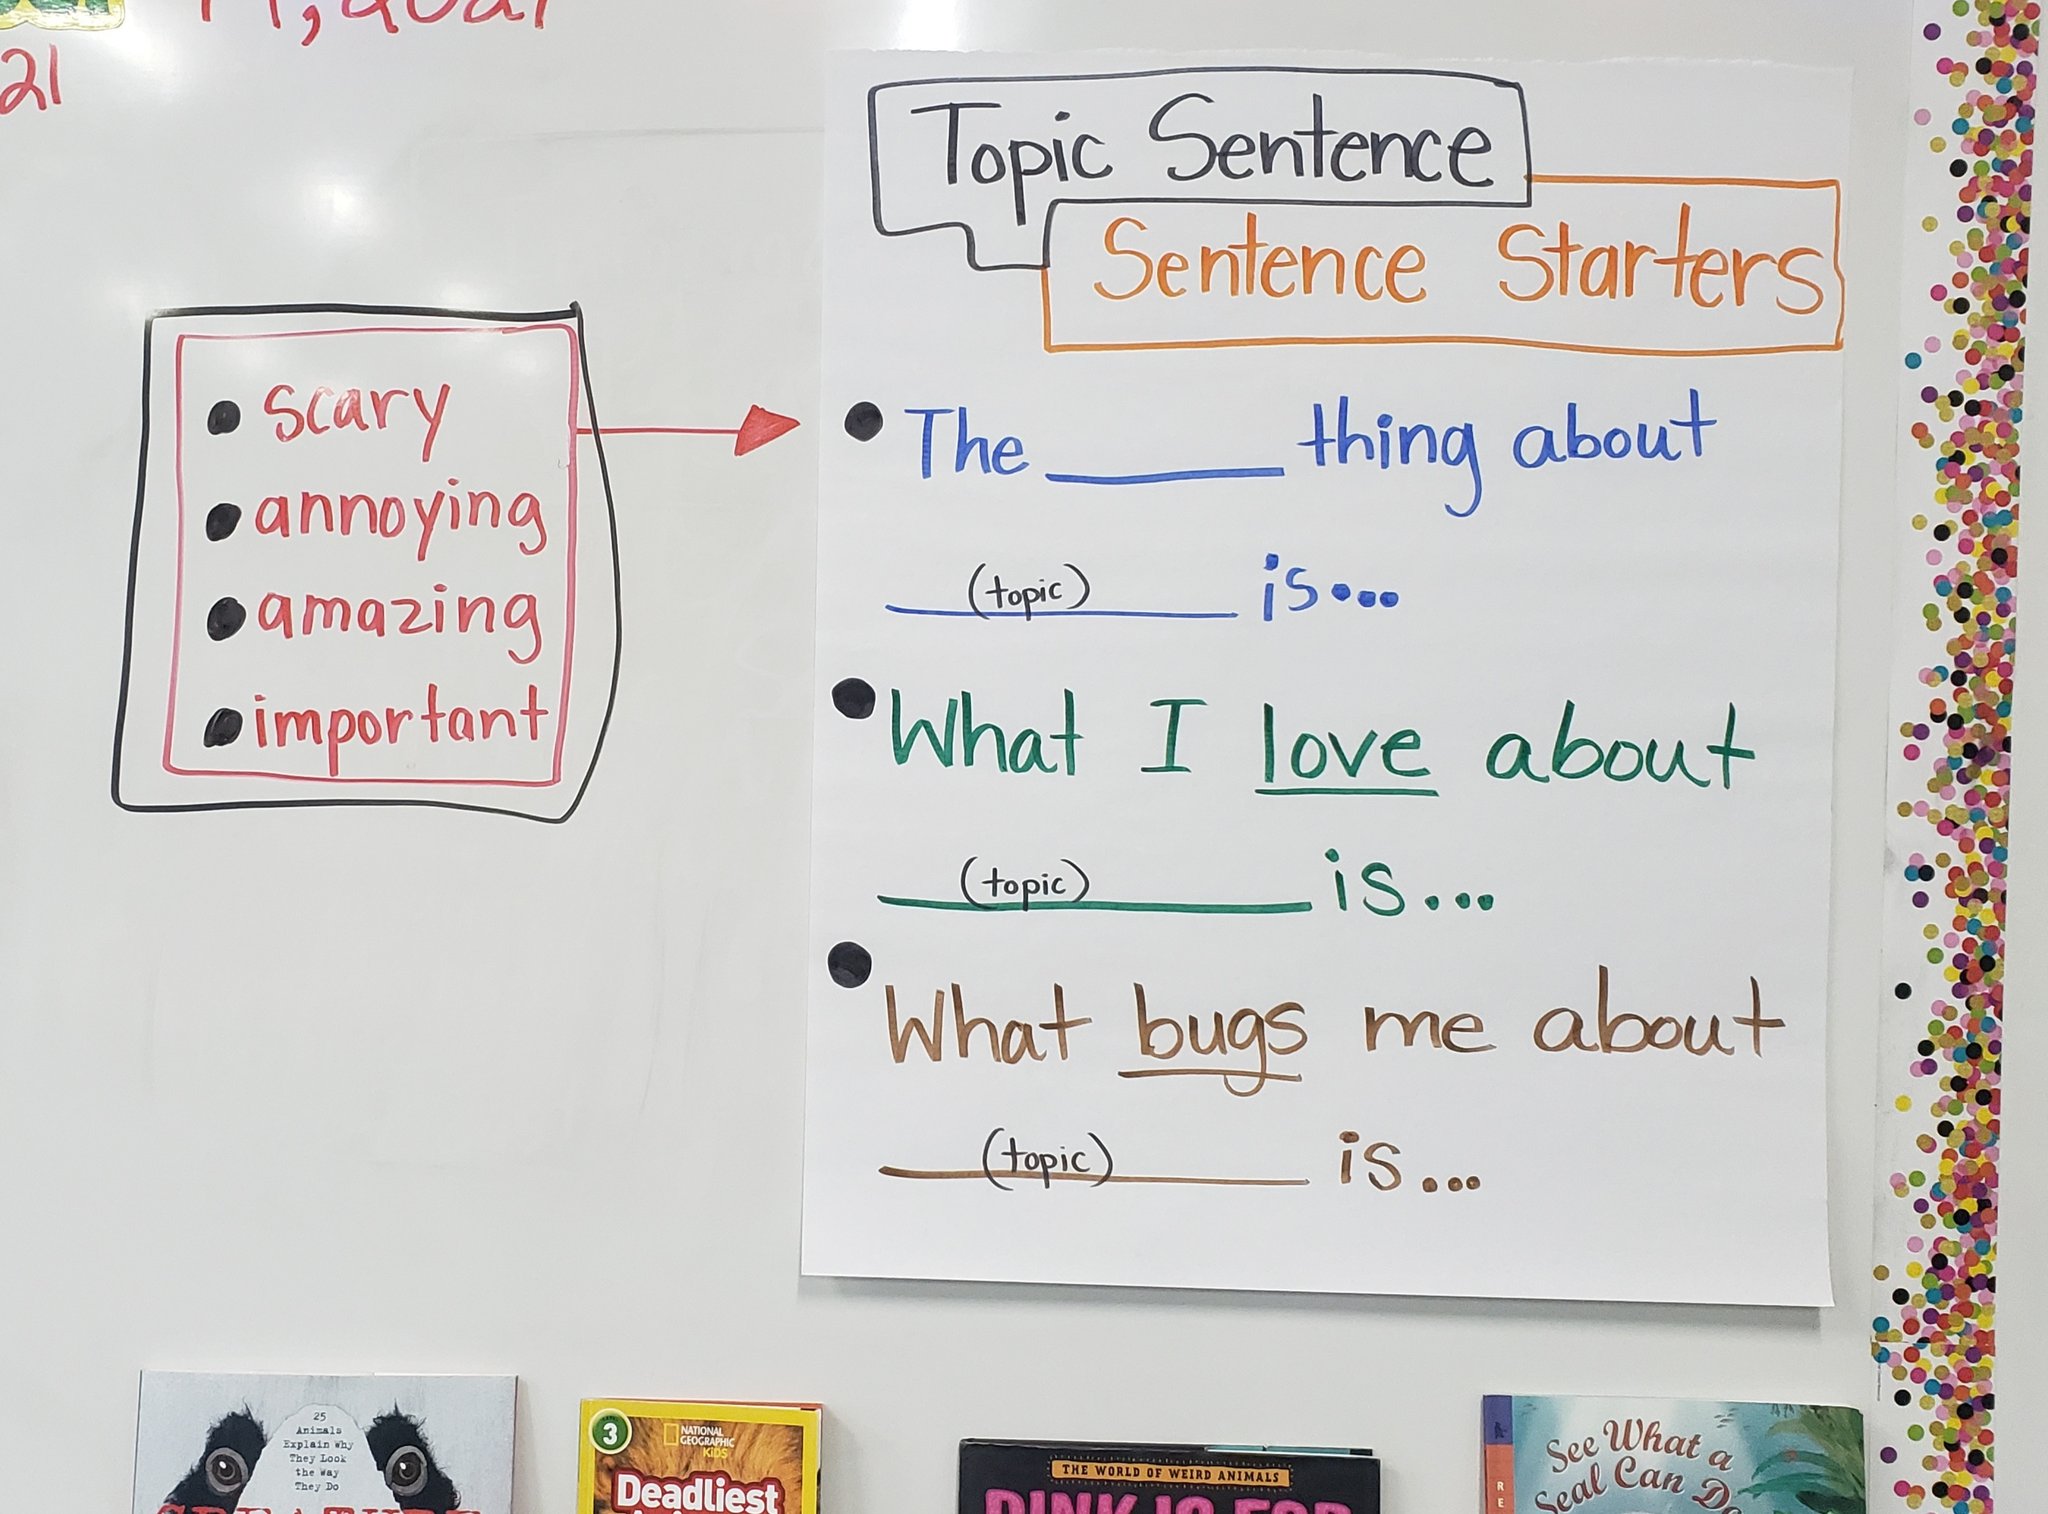 21
scary
annoying
amazing
important
Topic Sentence
Sentence Starters
The ______ thing about
(topic) is...
What I love about
(topic) is...
What bugs me about
(topic) is...
25
Animals
Explain Why
They Look
the Way
They Do
3
NATIONAL
GEOGRAPHIC
KiDS
Deadliest
THE WORLD OF WEIRD ANIMALS
PINK IS FOR
See What a
Seal Can Do